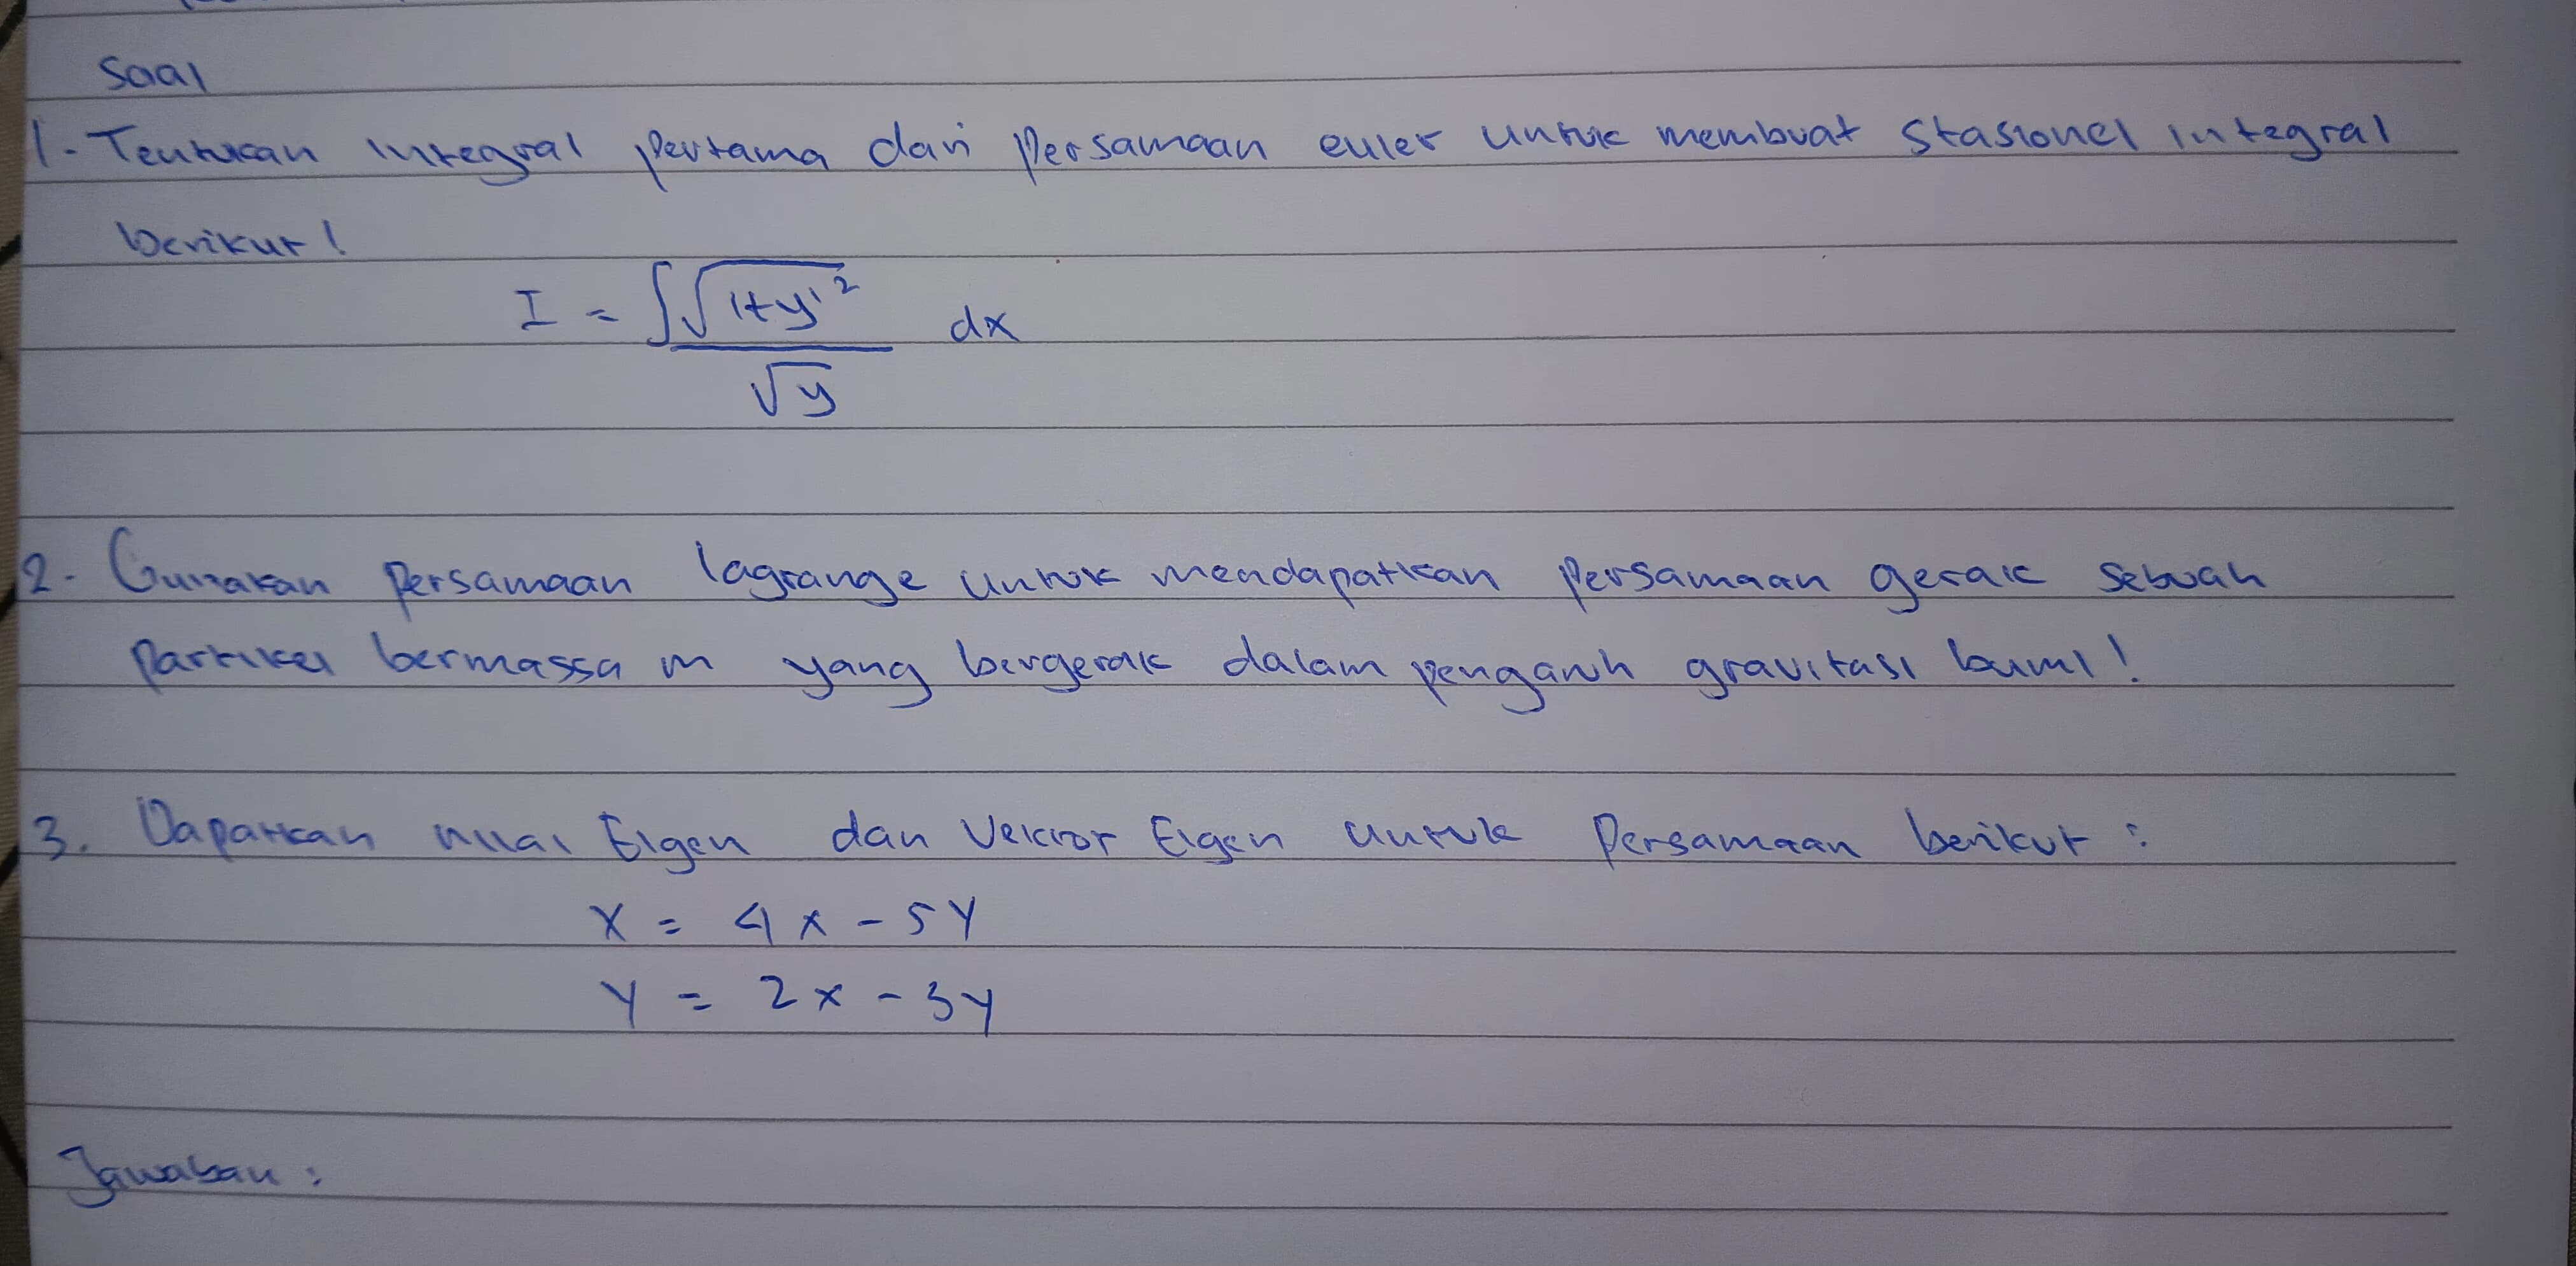 Soal
1. Tentukan integral pertama dari persamaan euler untuk membuat stasioner integral
berikut!
I = ∫ √1+y'² / √y dx
2. Gunakan persamaan lagrange untuk mendapatkan persamaan gerak sebuah
partikel bermassa m yang bergerak dalam pengaruh gravitasi bumi!
3. Dapatkan nilai Eigen dan Vektor Eigen untuk persamaan berikut :
X = 4x - 5y
Y = 2x - 3y
Jawaban :